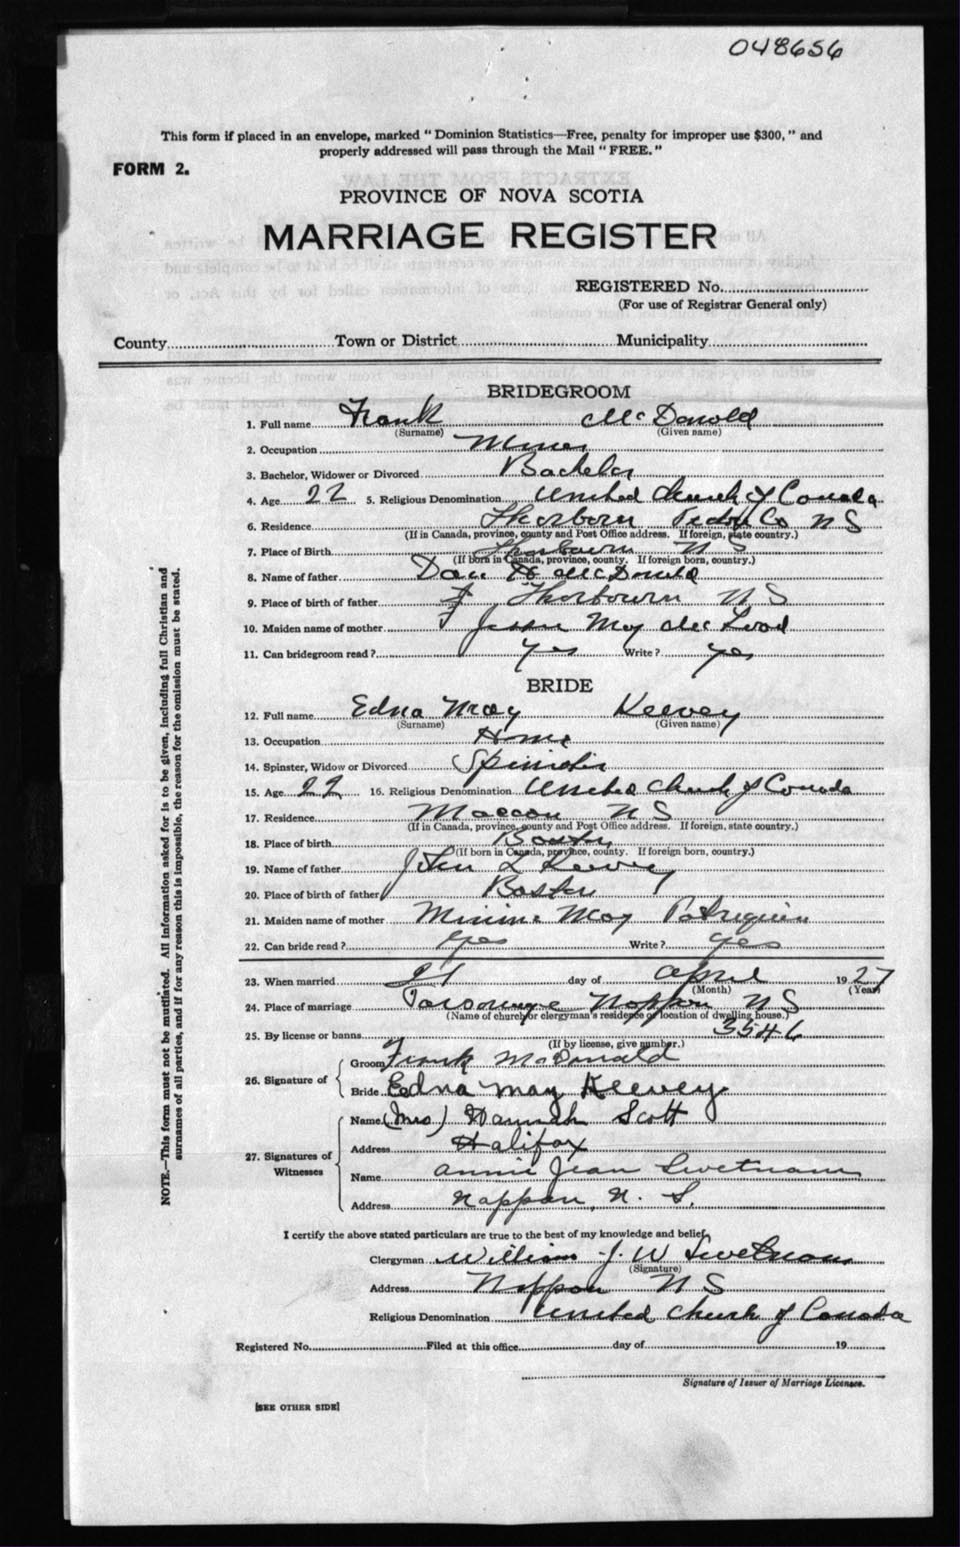 048656
This form if placed in an envelope, marked " Dominion Statistics—Free, penalty for improper use $300, " and
properly addressed will pass through the Mail " FREE. "
FORM 2.
PROVINCE OF NOVA SCOTIA
MARRIAGE REGISTER
REGISTERED No.
(For use of Registrar General only)
County Town or District Municipality
BRIDEGROOM
1. Full name Frank McDonald
(Surname) (Given name)
2. Occupation Miner
3. Bachelor, Widower or Divorced Bachelor
4. Age 22 5. Religious Denomination United Church of Canada
6. Residence Thorburn Pictou Co N S
(If in Canada, province, county and Post Office address. If foreign, state country.)
7. Place of Birth Thorburn N S
(If born in Canada, province, county. If foreign born, country.)
8. Name of father Dan H McDonald
9. Place of birth of father Thorburn N S
10. Maiden name of mother Jessie May McLeod
11. Can bridegroom read? yes Write? yes
BRIDE
12. Full name Edna May Keevey
(Surname) (Given name)
13. Occupation Home
14. Spinster, Widow or Divorced Spinster
15. Age 22 16. Religious Denomination United Church of Canada
17. Residence Maccan N S
(If in Canada, province, county and Post Office address. If foreign, state country.)
18. Place of birth Boston
(If born in Canada, province, county. If foreign born, country.)
19. Name of father John L Keevey
20. Place of birth of father Boston
21. Maiden name of mother Minnie May Patriquin
22. Can bride read? yes Write? yes
23. When married 21 day of April 1927
(Month) (Year)
24. Place of marriage Parsonage Nappan N S
(Name of church or clergyman's residence or location of dwelling house.)
25. By license or banns 3546
(If by license, give number.)
26. Signature of Groom Frank McDonald
Bride Edna May Keevey
27. Signatures of Witnesses
Name (Mrs) Hannah Scott
Address Halifax
Name Annie Jean Swetnam
Address Nappan, N. S.
I certify the above stated particulars are true to the best of my knowledge and belief,
Clergyman William J. W Swetnam
(Signature)
Address Nappan N S
Religious Denomination United Church of Canada
Registered No. Filed at this office day of 19
Signature of Issuer of Marriage Licenses.
[SEE OTHER SIDE]
NOTE.—This form must not be mutilated. All information asked for is to be given, including full Christian and
surnames of all parties, and if for any reason this is impossible, the reason for the omission must be stated.